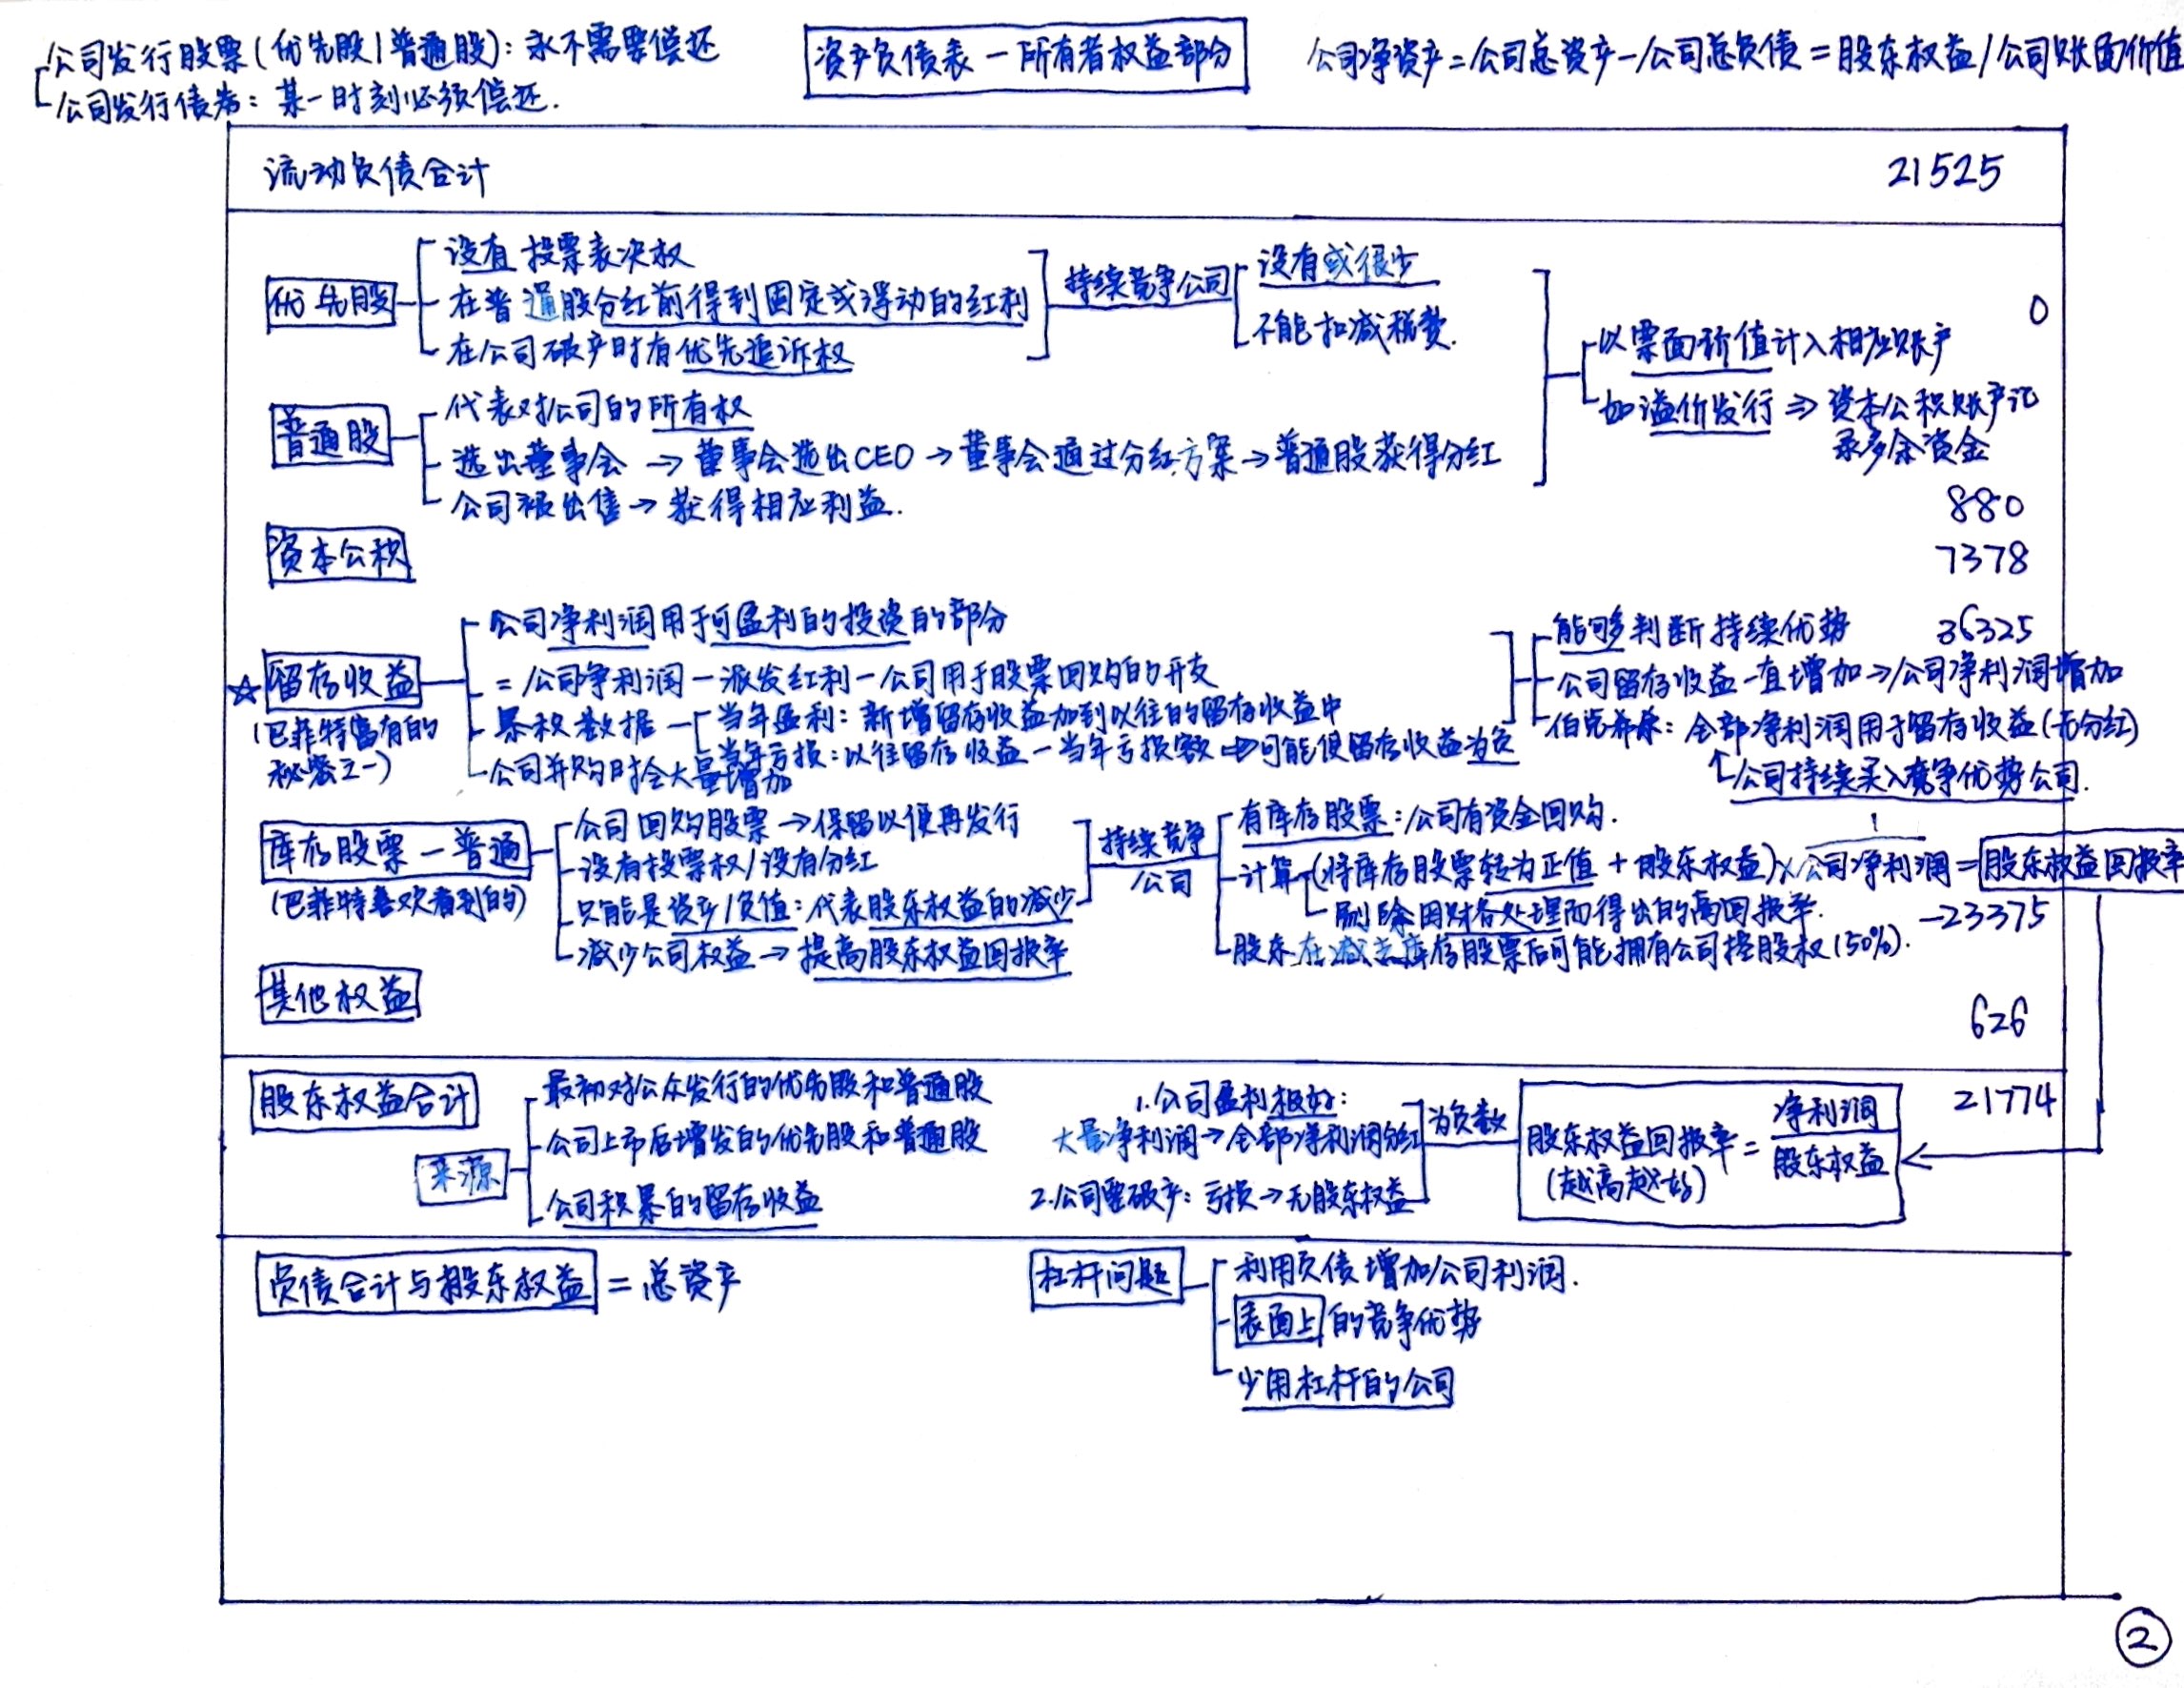 公司发行股票(优先股/普通股)：永不需要偿还
公司发行债券：某一时刻必须偿还.
资产负债表—所有者权益部分
公司净资产=公司总资产-公司总负债=股东权益/公司账面价值
流动负债合计 21525
优先股 0
没有投票表决权
在普通股分红前得到固定或浮动的红利
在公司破产时有优先追诉权
持续竞争公司
没有或很少
不能扣减税费.
以票面价值计入相应账户
如溢价发行⇒资本公积账户记
录多余资金
普通股 880
代表对公司的所有权
选出董事会→董事会选出CEO→董事会通过分红方案→普通股获得分红
公司被出售→获得相应利益.
资本公积 7378
☆留存收益 36325
(巴菲特富有的
秘密之一)
公司净利润用于可盈利的投资的部分
=公司净利润-派发红利-公司用于股票回购的开支
累积数据
当年盈利：新增留存收益加到以往的留存收益中
当年亏损：以往留存收益-当年亏损额 也可能使留存收益为负
公司并购时会大量增加
能够判断持续优势
公司留存收益一直增加→公司净利润增加
伯克希尔：全部净利润用于留存收益(无分红)
↑公司持续买入竞争优势公司.
库存股票—普通 -23375
(巴菲特喜欢看到的)
公司回购股票→保留以便再发行
没有投票权/没有分红
只能是资产/负值：代表股东权益的减少
减少公司权益→提高股东权益回报率
持续竞争
公司
有库存股票：公司有资金回购.
计算(将库存股票转为正值+股东权益)×1/公司净利润=股东权益回报率
剔除因财务处理而得出的高回报率.
股东在减去库存股票后可能拥有公司控股权(50%).
其他权益 626
股东权益合计 21774
来源
最初对公众发行的优先股和普通股
公司上市后增发的优先股和普通股
公司积累的留存收益
1.公司盈利极好：
大量净利润→全部净利润分红
2.公司要破产：亏损→无股东权益
为负数
股东权益回报率=净利润/股东权益
(越高越好)
负债合计与股东权益=总资产
杠杆问题
利用负债增加公司利润.
表面上的竞争优势
少用杠杆的公司
②